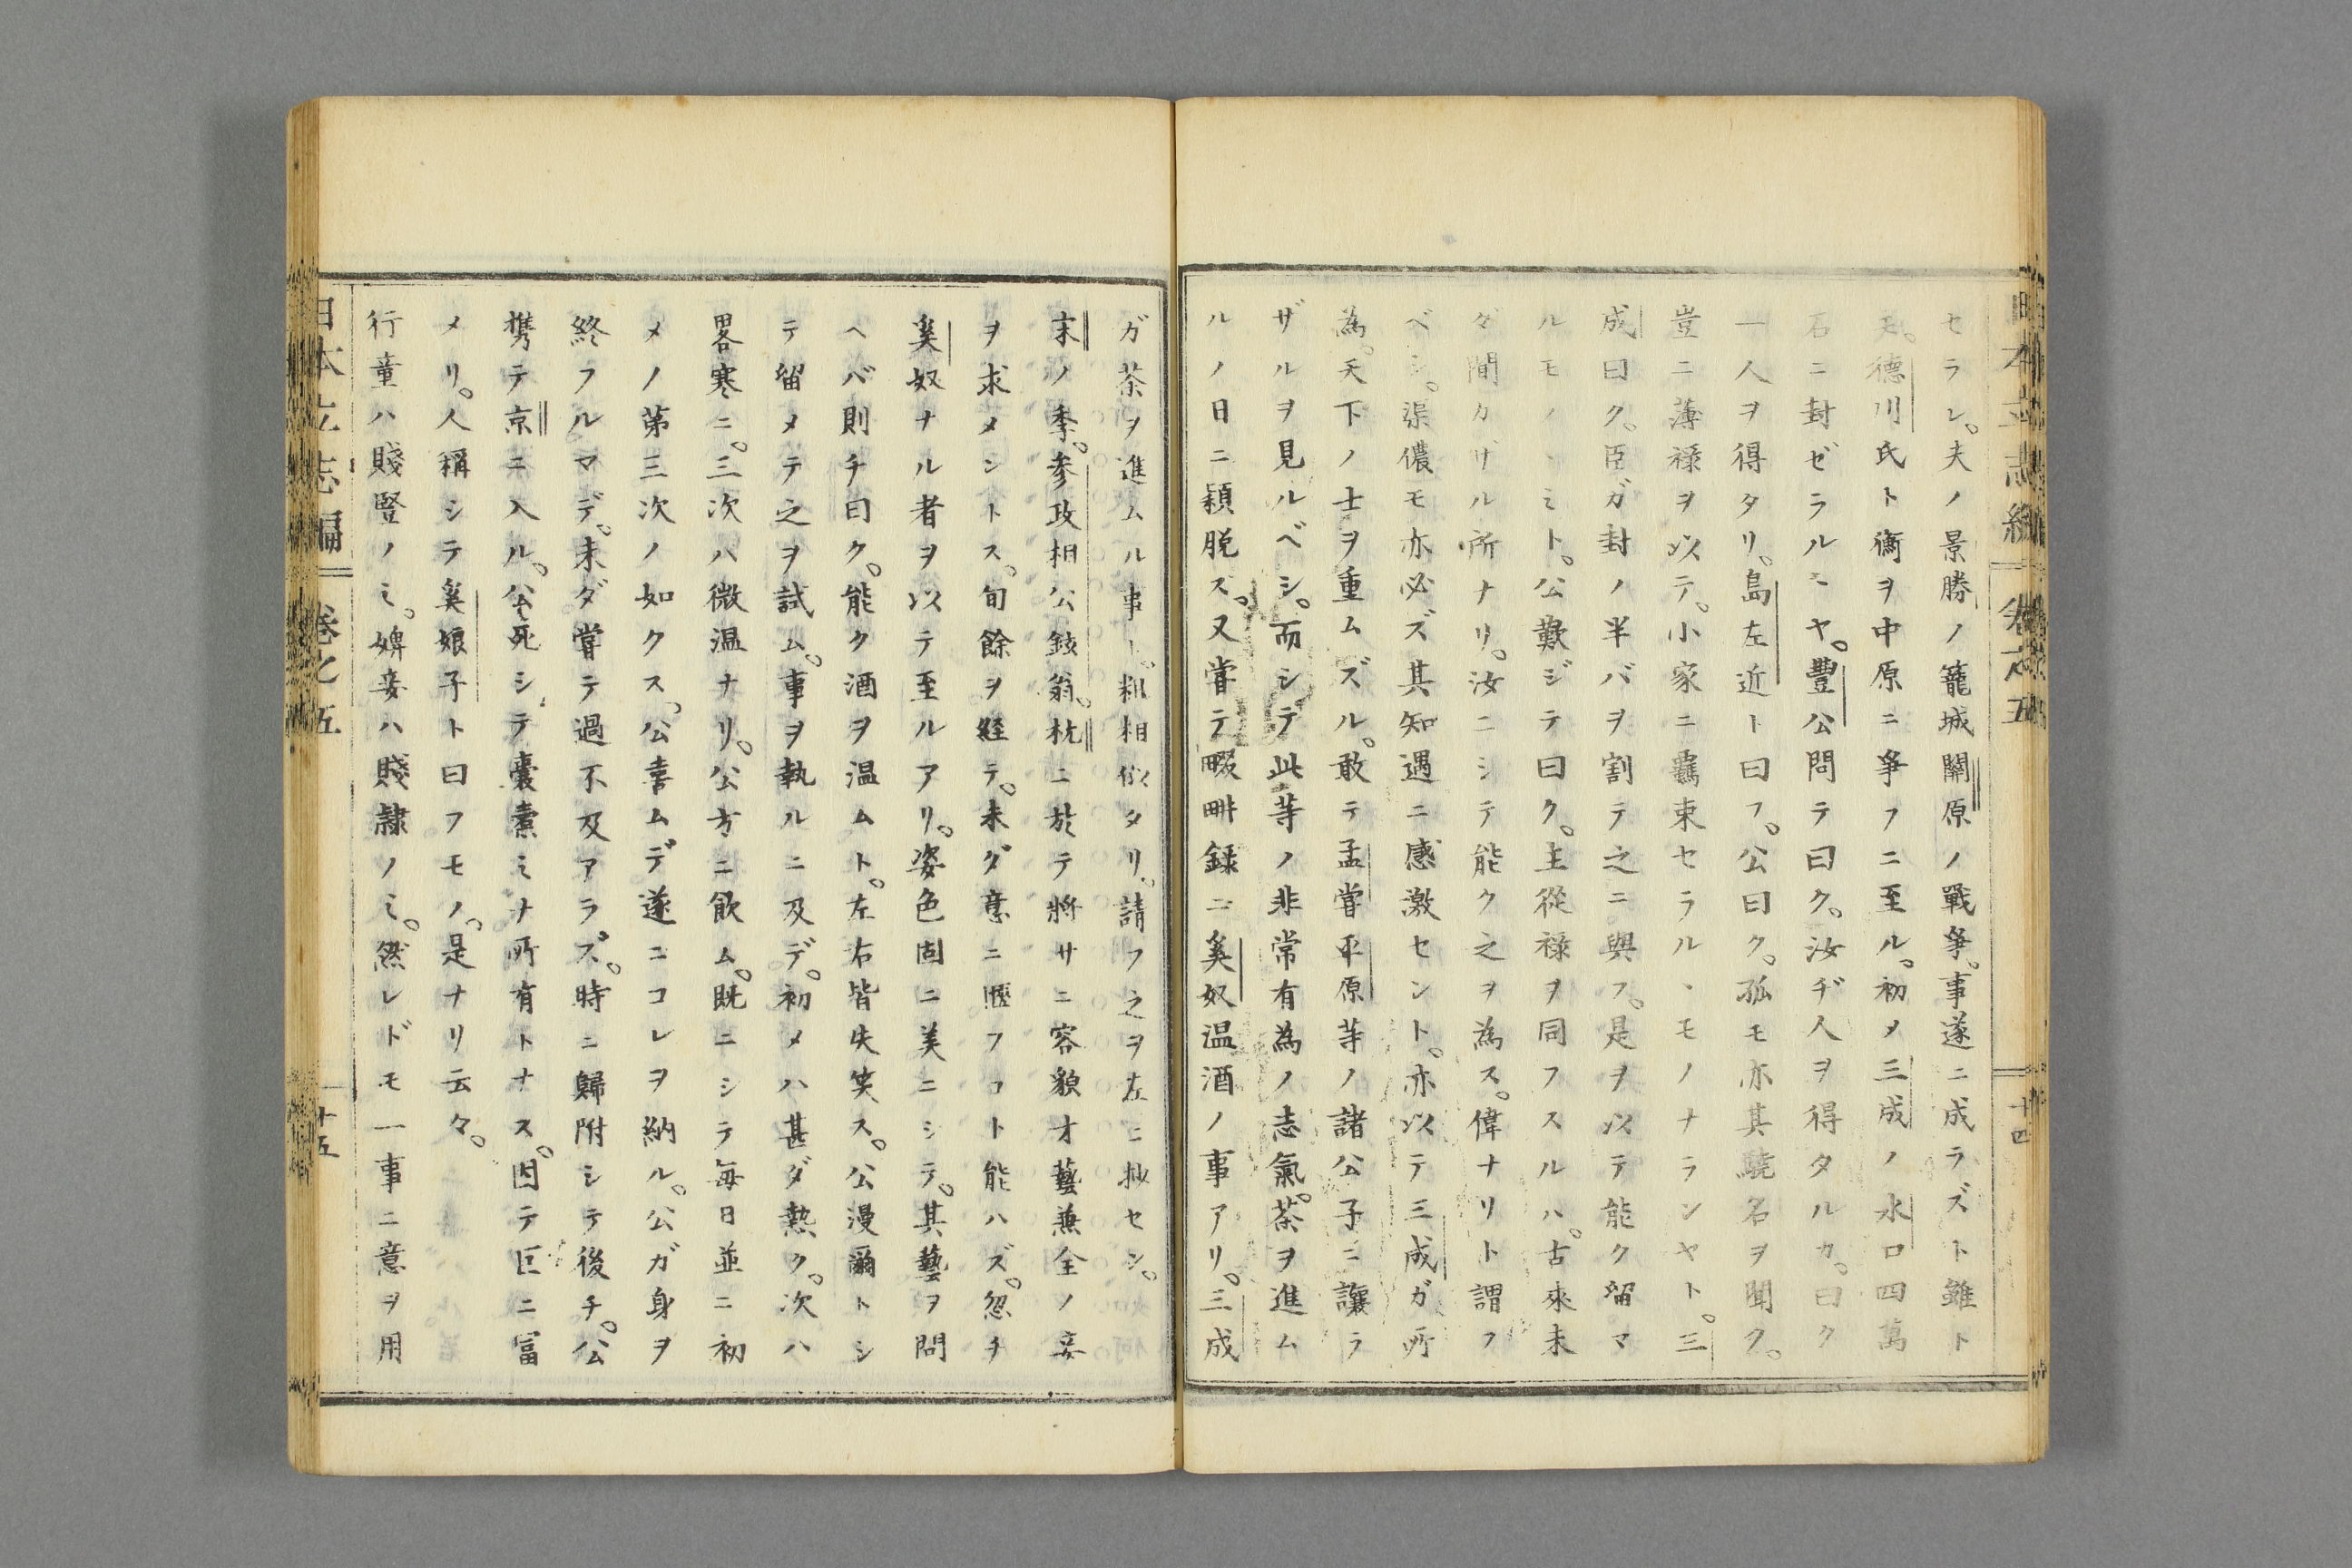 日本立志編 卷之五 十四
セラレ。夫ノ景勝ノ籠城關原ノ戰爭。事遂ニ成ラズト雖ト
モ。德川氏ト衡ヲ中原ニ爭フニ至ル。初メ三成ノ水口四萬
石ニ封ゼラルヽヤ。豐公問テ曰ク。汝ヂ人ヲ得タルカ。曰ク
一人ヲ得タリ。島左近ト曰フ。公曰ク。孤モ亦其驍名ヲ聞ク。
豈ニ薄祿ヲ以テ。小家ニ羈束セラルヽモノナランヤト。三
成曰ク。臣ガ封ノ半バヲ割テ之ニ與フ。是ヲ以テ能ク留マ
ルモノヽミト。公歎ジテ曰ク。主從祿ヲ同フスルハ。古來未
ダ聞カザル所ナリ。汝ニシテ能ク之ヲ為ス。偉ナリト謂フ
ベシ。渠儂モ亦必ズ其知遇ニ感激セント。亦以テ三成ガ所
為。天下ノ士ヲ重ムズル。敢テ孟嘗平原等ノ諸公子ニ讓ラ
ザルヲ見ルベシ。而シテ此等ノ非常有為ノ志氣。茶ヲ進ム
ルノ日ニ穎脱ズ。又嘗テ畷畊錄ニ奚奴温酒ノ事アリ。三成
ガ茶ヲ進ムル事ト。粗相似タリ。請フ之ヲ左ニ抄セシ。
宋ノ季。参政相公鉉翁。杭ニ於テ將サニ容貌才藝兼全ノ妾
ヲ求メントス。旬餘ヲ經テ。未ダ意ニ愜フコト能ハズ。忽チ
奚奴ナル者ヲ以テ至ルアリ。姿色固ニ美ニシテ。其藝ヲ問
ヘバ則チ曰ク。能ク酒ヲ温ムト。左右皆失笑ス。公漫爾トシ
テ留メテ之ヲ試ム。事ヲ執ルニ及デ。初メハ甚ダ熱ク。次ハ
畧寒ニ。三次ハ微温ナリ。公方ニ飮ム。既ニシテ每日並ニ初
メノ第三次ノ如クス。公喜ムデ遂ニコレヲ納ル。公ガ身ヲ
終フルマデ。未ダ嘗テ過不及アラズ。時ニ歸附シテ後チ。公
携テ京ニ入ル。公死シテ囊橐ミナ所有トナス。因テ巨ニ冨
メリ。人稱シテ奚娘子ト曰フモノ。是ナリ云々。
行童ハ賤豎ノミ。婢妾ハ賤隸ノミ。然レドモ一事ニ意ヲ用
日本立志編 卷之五 十五